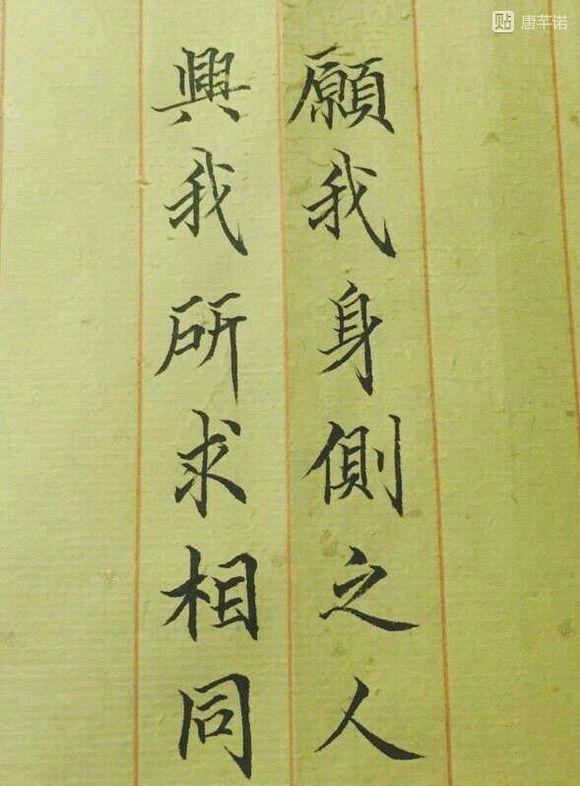 願我身側之人
興我所求相同
貼 唐芊诺